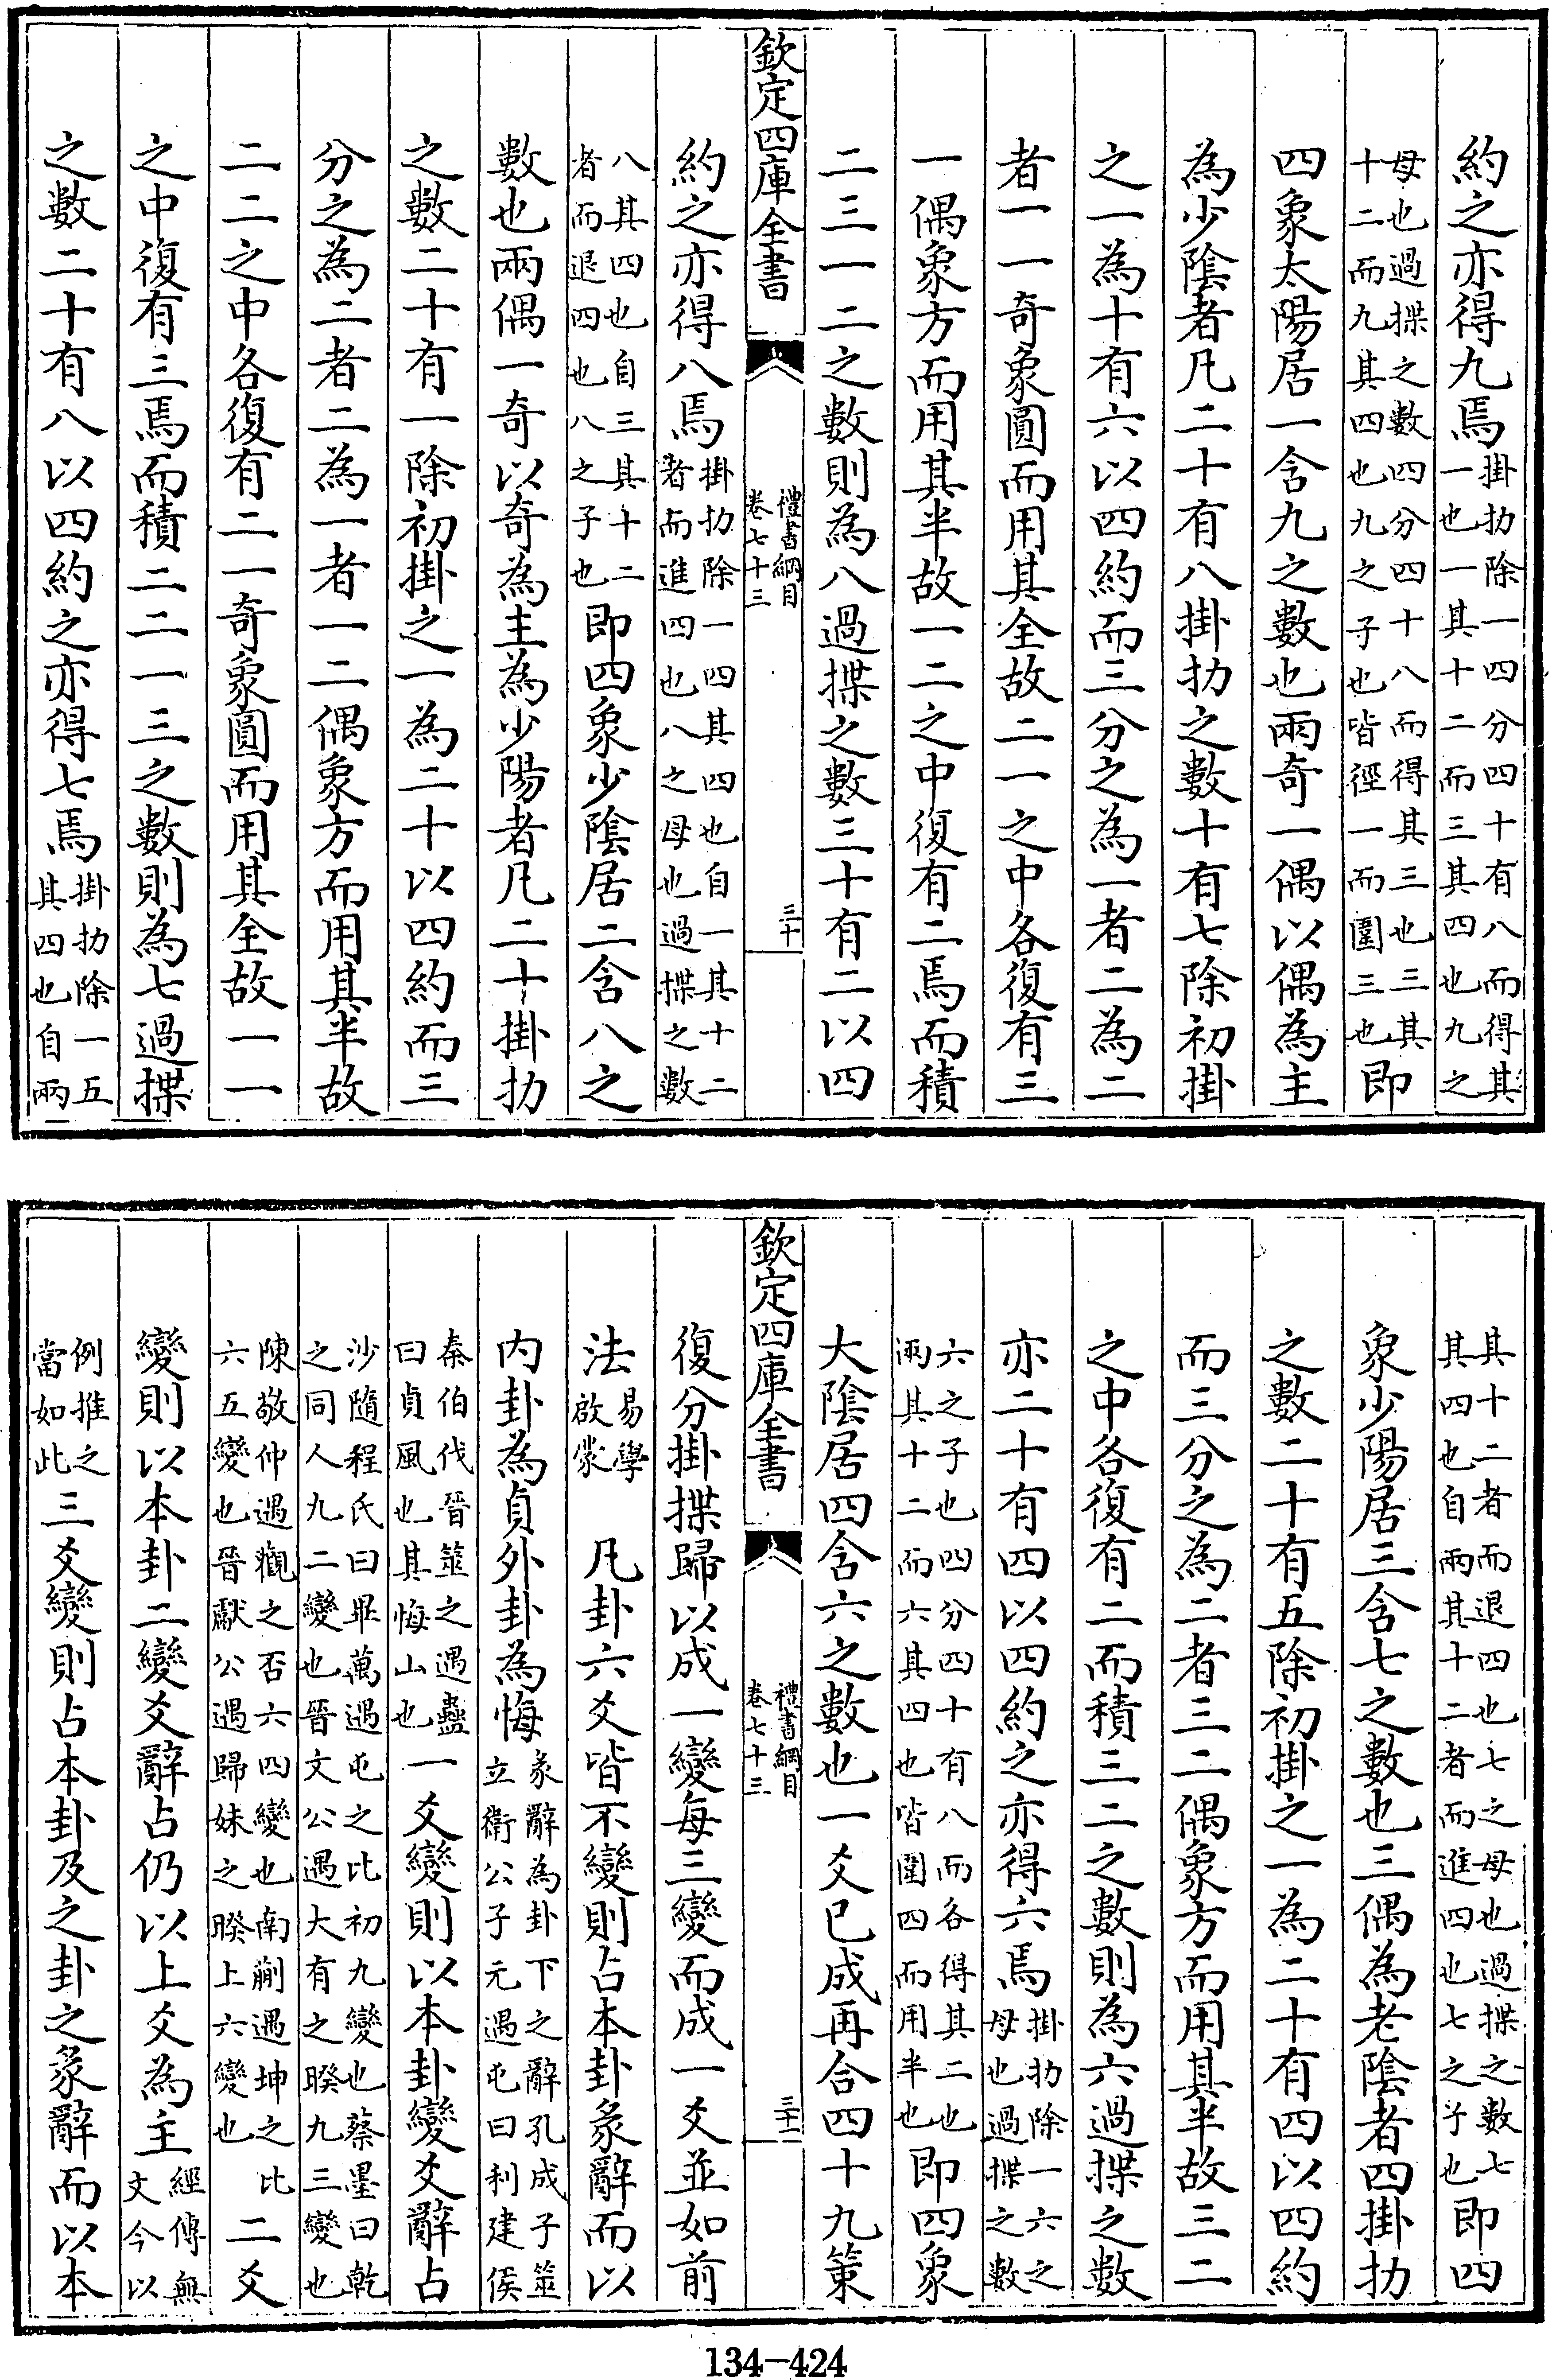 約之亦得九焉掛扐除一四分四十有八而得其一也一其十二而三其四也九之
母也過揲之數四分四十八而得其三也三其十二而九其四也九之子也皆徑一而圍三也即
四象太陽居一含九之數也兩奇一偶以偶為主
為少陰者凡二十有八掛扐之數十有七除初掛
之一為十有六以四約而三分之為一者二為二
者一一奇象圓而用其全故二一之中各復有三
一偶象方而用其半故一二之中復有二焉而積
二三一二之數則為八過揲之數三十有二以四
欽定四庫全書
禮書綱目
卷七十三
三十
約之亦得八焉掛扐除一四其四也自一其十二者而進四也八之母也過揲之數
八其四也自三其十二者而退四也八之子也即四象少陰居二含八之
數也兩偶一奇以奇為主為少陽者凡二十掛扐
之數二十有一除初掛之一為二十以四約而三
分之為二者二為一者一二偶象方而用其半故
二二之中各復有二一奇象圓而用其全故一一
之中復有三焉而積二二一三之數則為七過揲
之數二十有八以四約之亦得七焉掛扐除一五其四也自兩
其十二者而退四也七之母也過揲之數七其四也自兩其十二者而進四也七之子也即四
象少陽居三含七之數也三偶為老陰者四掛扐
之數二十有五除初掛之一為二十有四以四約
而三分之為二者三二偶象方而用其半故三二
之中各復有二而積三二之數則為六過揲之數
亦二十有四以四約之亦得六焉掛扐除一六之母也過揲之數
六之子也四分四十有八而各得其二也兩其十二而六其四也皆圍四而用半也即四象
大陰居四含六之數也一爻已成再合四十九策
欽定四庫全書
禮書綱目
卷七十三
三十一
復分掛揲歸以成一變每三變而成一爻並如前
法易學啟蒙 凡卦六爻皆不變則占本卦彖辭而以
内卦為貞外卦為悔彖辭為卦下之辭孔成子筮立衞公子元遇屯曰利建侯
秦伯伐晉筮之遇蠱曰貞風也其悔山也一爻變則以本卦變爻辭占
沙隨程氏曰畢萬遇屯之比初九變也蔡墨曰乾之同人九二變也晉文公遇大有之暌九三變也
陳敬仲遇觀之否六四變也南蒯遇坤之比六五變也晉獻公遇歸妹之暌上六變也二爻
變則以本卦二變爻辭占仍以上爻為主經傳無文今以
例推之當如此三爻變則占本卦及之卦之彖辭而以本
134-424